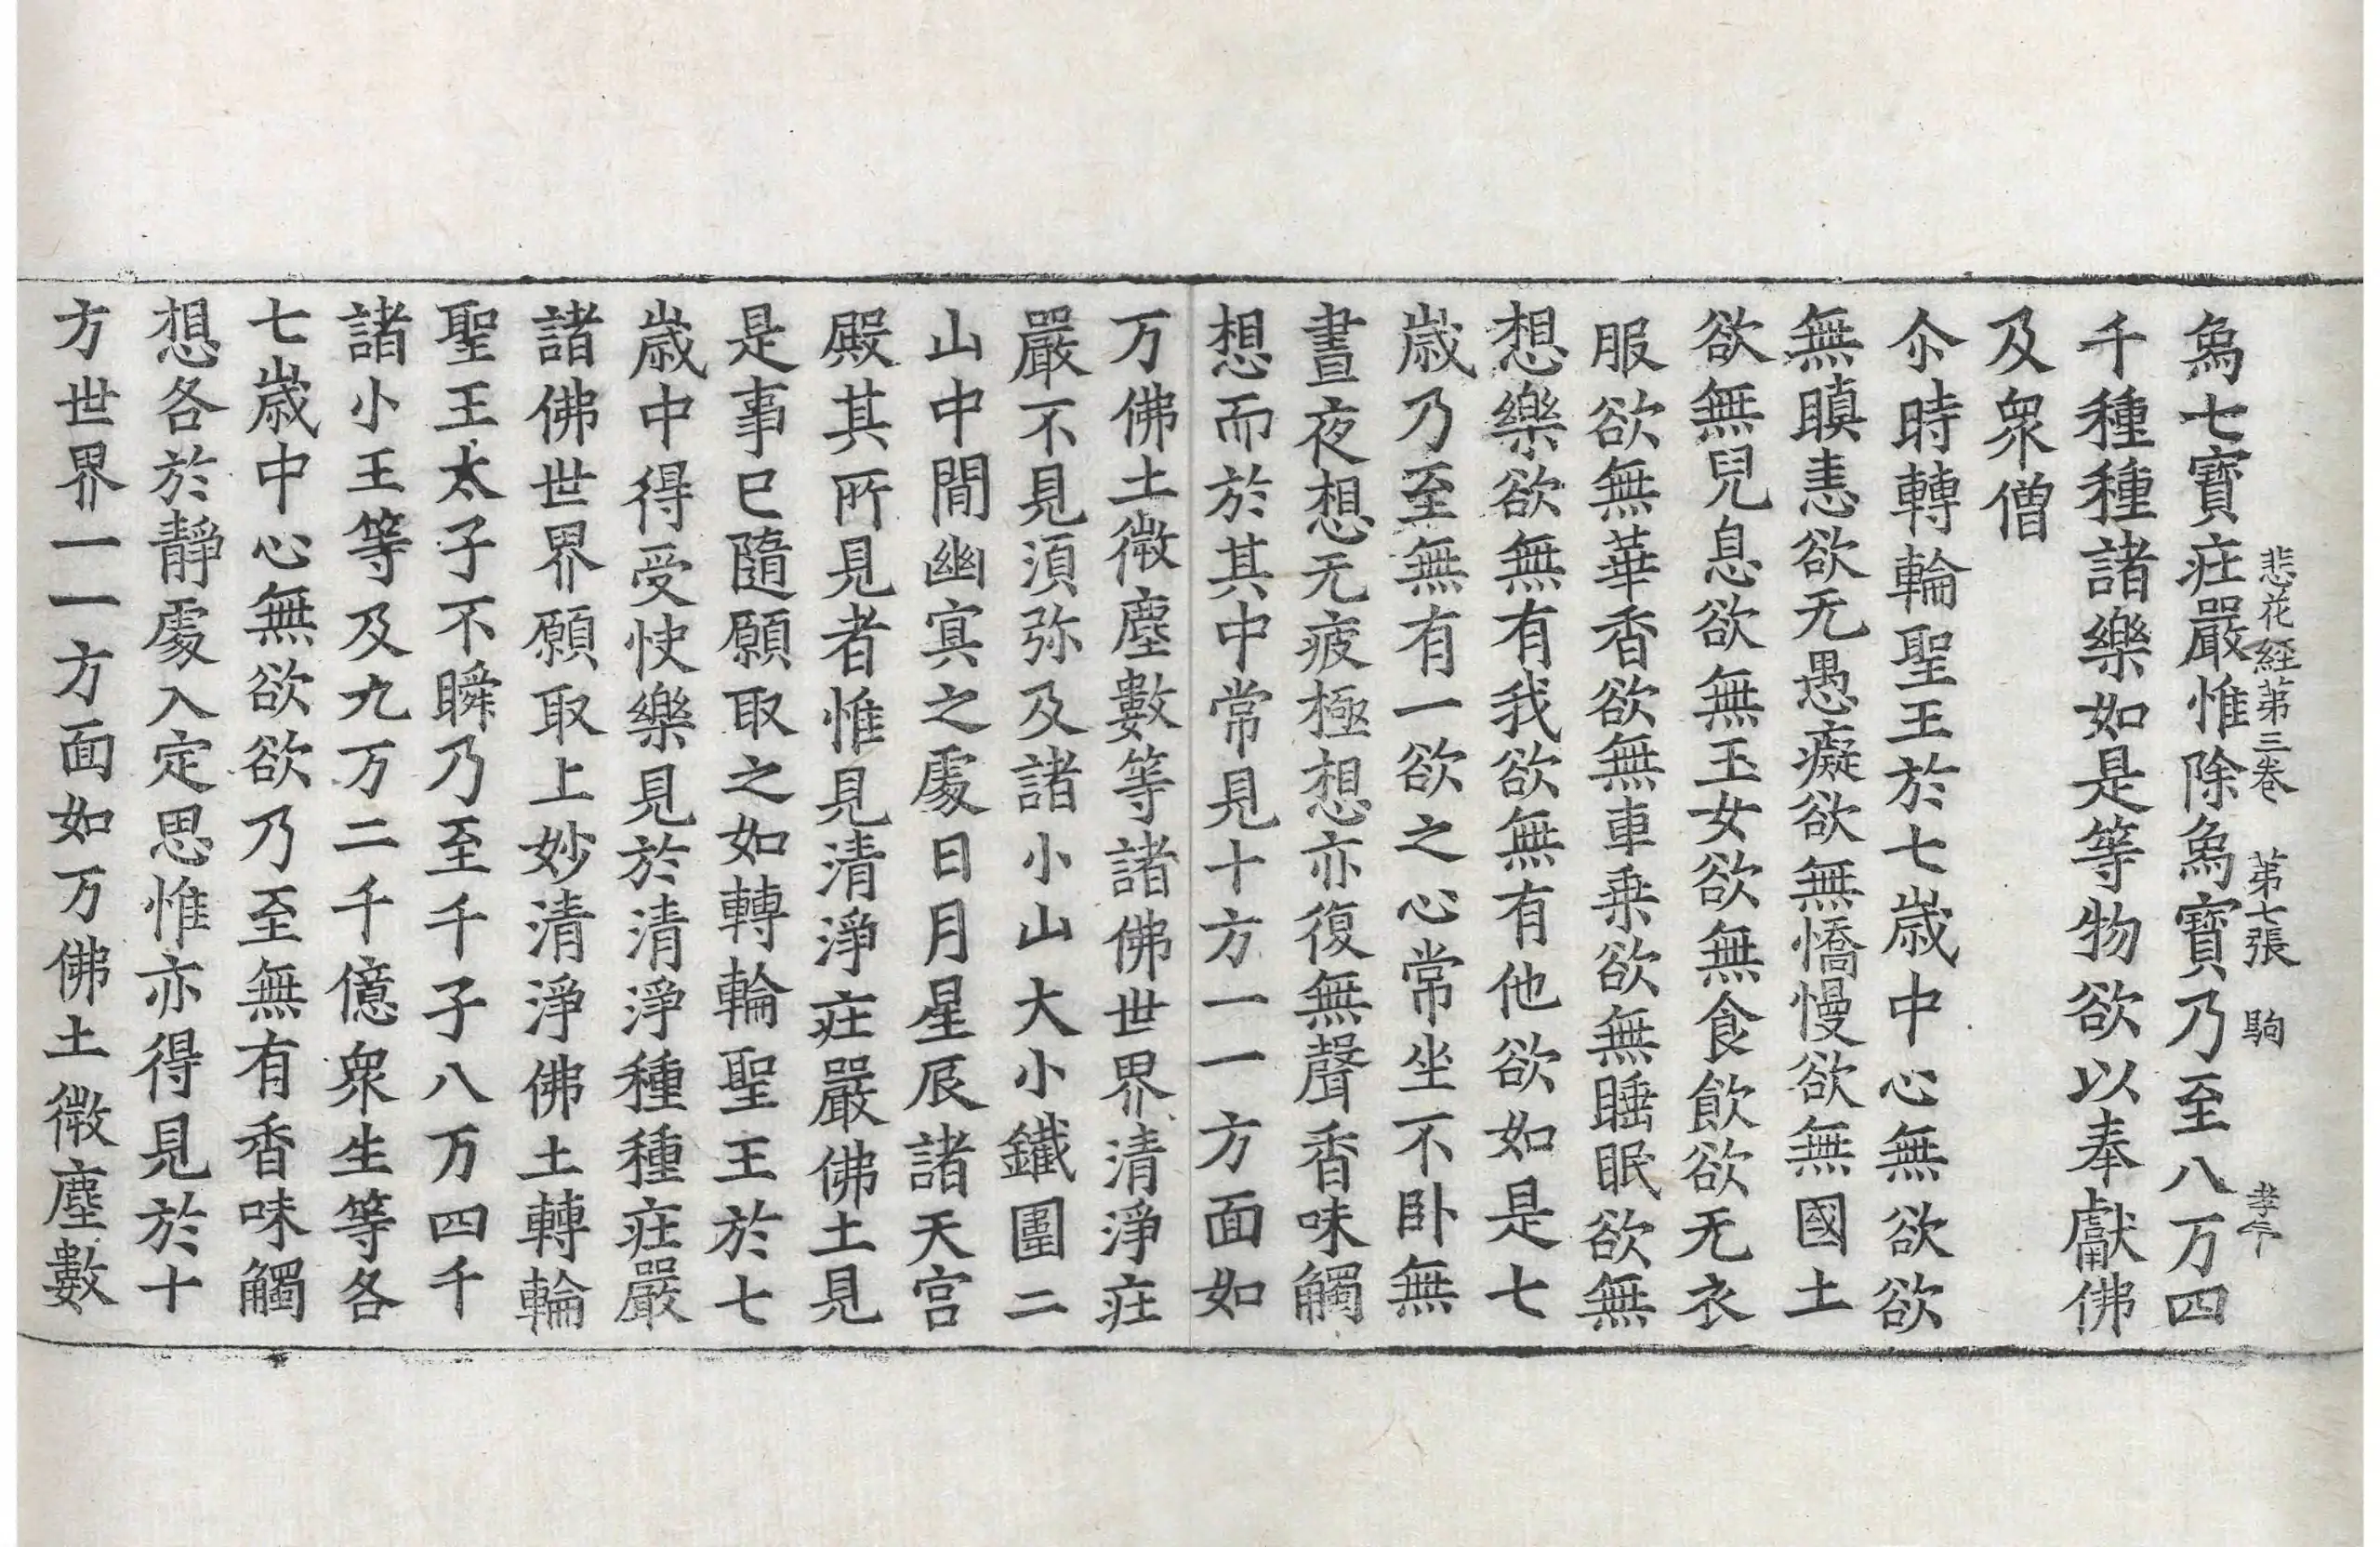 悲花経苐三巻 苐七張 駒 孝午
為七寶疘嚴惟除為寶乃至八万四
千種種諸樂如是等物欲以奉獻佛
及衆僧
尒時轉輪聖王於七歲中心無欲欲
無瞋恚欲无愚癡欲無憍慢欲無國土
欲無兒息欲無玉女欲無食飲欲无衣
服欲無華香欲無車乗欲無睡眠欲無
想樂欲無有我欲無有他欲如是七
歲乃至無有一欲之心常坐不卧無
晝夜想无疲極想亦復無聲香味觸
想而於其中常見十方一一方面如
万佛土微塵數等諸佛世界清淨疘
嚴不見須弥及諸小山大小鐵圍二
山中閒幽㝠之處日月星辰諸天宫
殿其所見者惟見清淨疘嚴佛土見
是事已隨願取之如轉輪聖王於七
歲中得受快樂見於清淨種種疘嚴
諸佛世界願取上妙清淨佛土轉輪
聖王太子不瞬乃至千子八万四千
諸小王等及九万二千億衆生等各
七歲中心無欲欲乃至無有香味觸
想各於靜處入定思惟亦得見於十
方世界一一方面如万佛土微塵數